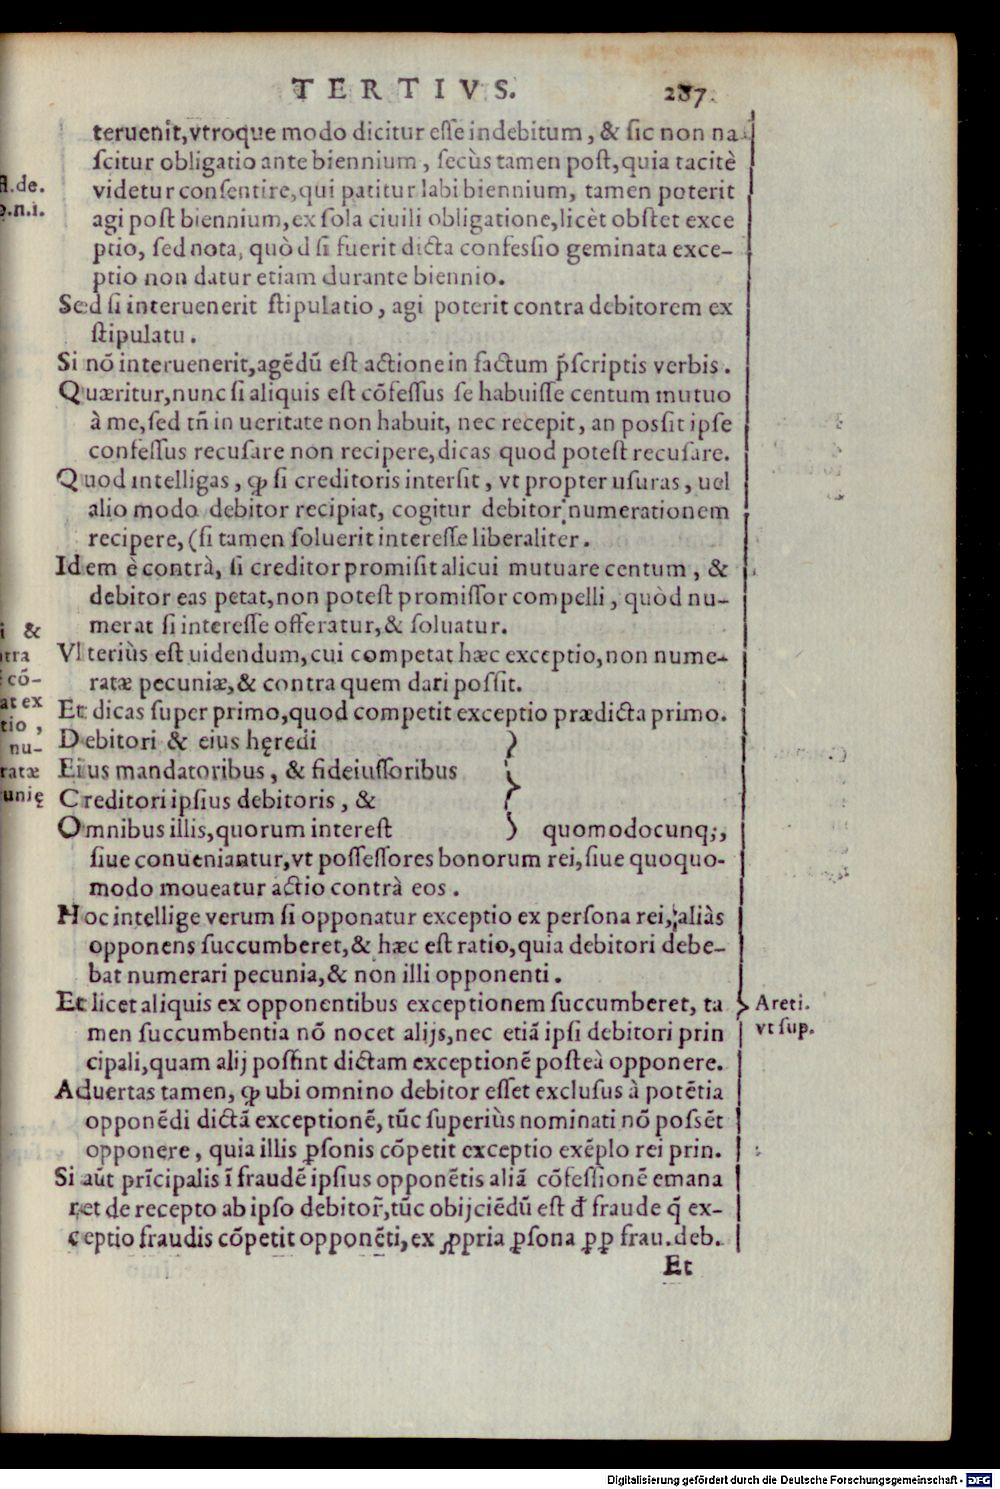 TERTIVS. 287.
teruenit,vtroque modo dicitur esse indebitum, & sic non na
scitur obligatio ante biennium, secùs tamen post,quia tacitè
videtur consentire,qui patitur labi biennium, tamen poterit
agi post biennium,ex sola ciuili obligatione,licèt obstet exce
ptio, sed nota, quòd si fuerit dicta confessio geminata exce-
ptio non datur etiam durante biennio.
Sed si interuenerit stipulatio, agi poterit contra debitorem ex
stipulatu.
Si nõ interuenerit,agẽdũ est actione in factum p̃scriptis verbis.
Quæritur,nunc si aliquis est cõfessus se habuisse centum mutuo
à me,sed tñ in ueritate non habuit, nec recepit, an possit ipse
confessus recusare non recipere,dicas quod potest recusare.
Quod intelligas, ꝙ si creditoris intersit, vt propter usuras, uel
alio modo debitor recipiat, cogitur debitor numerationem
recipere, (si tamen soluerit interesse liberaliter.
Idem è contrà, si creditor promisit alicui mutuare centum, &
debitor eas petat,non potest promissor compelli, quòd nu-
merat si interesse offeratur,& soluatur.
Vlteriùs est uidendum,cui competat hæc exceptio,non nume-
ratæ pecuniæ,& contra quem dari possit.
Et dicas super primo,quod competit exceptio prædicta primo.
Debitori & eius hęredi
Eius mandatoribus, & fideiussoribus
Creditori ipsius debitoris, &
Omnibus illis,quorum interest } quomodocunq;,
siue conueniantur,vt possessores bonorum rei,siue quoquo-
modo moueatur actio contrà eos.
Hoc intellige verum si opponatur exceptio ex persona rei, aliàs
opponens succumberet,& hæc est ratio,quia debitori debe-
bat numerari pecunia,& non illi opponenti.
Et licet aliquis ex opponentibus exceptionem succumberet, ta
men succumbentia nõ nocet alijs,nec etiã ipsi debitori prin
cipali,quam alij possint dictam exceptionẽ posteà opponere.
Aduertas tamen, ꝙ ubi omnino debitor esset exclusus à potẽtia
opponẽdi dictã exceptionẽ, tũc superiùs nominati nõ possẽt
opponere, quia illis ꝑsonis cõpetit exceptio exẽplo rei prin.
Si aũt prĩcipalis ĩ fraudẽ ipsius opponẽtis aliã cõfessionẽ emana
ret de recepto ab ipso debitor̃,tũc obijciẽdũ est đ fraude q̃ ex-
ceptio fraudis cõpetit opponẽti,ex ꝓpria ꝑsona ꝑꝑ frau.deb.
Et
Areti.
vt sup.
.de.
.n.i.
&
tra
cõ-
at ex
tio,
nu-
ratæ
unię
Digitalisierung gefördert durch die Deutsche Forschungsgemeinschaft - DFG